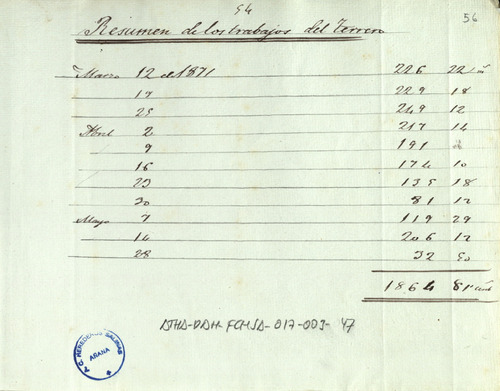 54
56
Resumen de los trabajos del Terrero
Marzo 12 de 1871 226 22
17 229 18
25 249 12
Abril 2 217 14
9 191
16 174 10
23 135 18
30 81 12
Mayo 7 119 29
14 206 12
28 32 50
1864 81
ATHA-DAH-FCMSA-017-003-47
HEREDEROS SALINAS
AÑANA